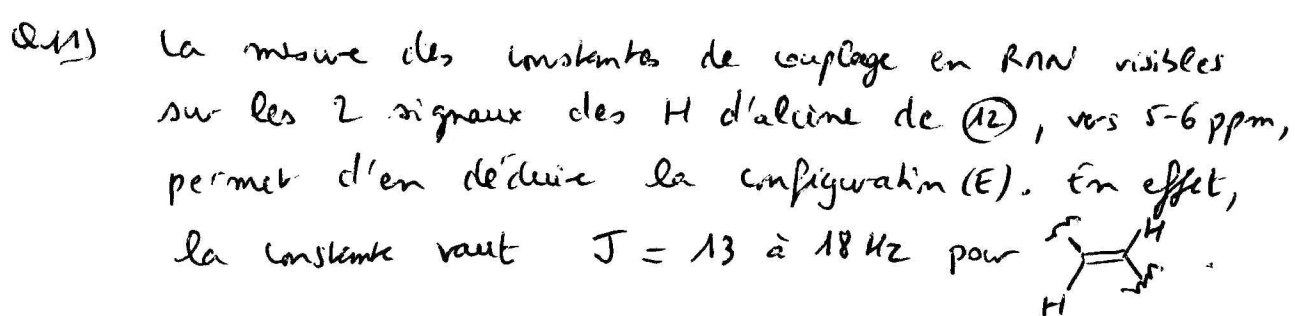 Q11) La mesure des constantes de couplage en RMN visibles
sur les 2 signaux des H d'alcène de (12), vers 5-6 ppm,
permet d'en déduire la configuration (E). En effet,
la constante vaut J = 13 à 18 Hz pour H
H